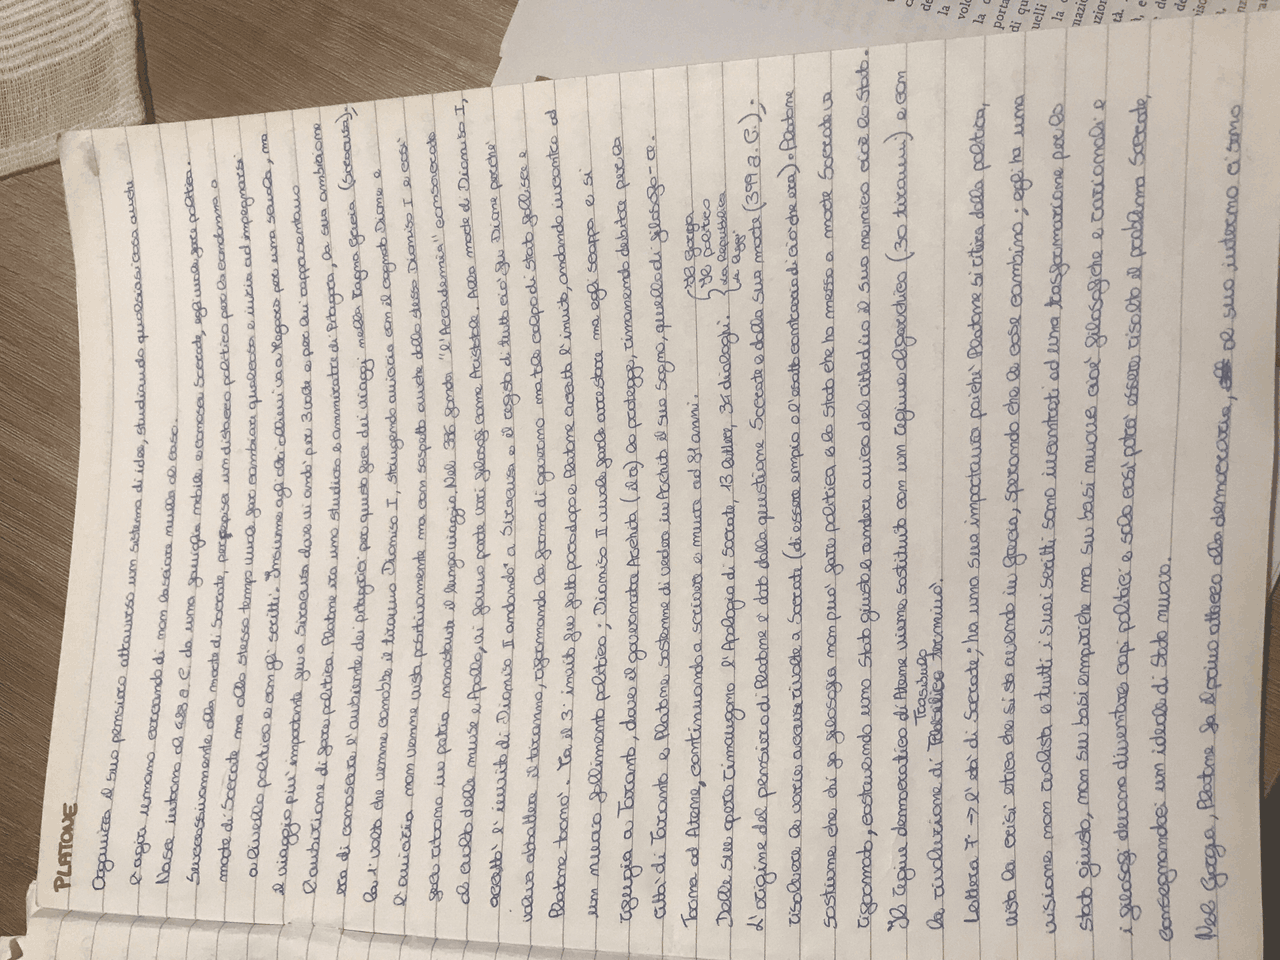 PLATONE
Organizza il suo pensiero attraverso un sistema di idee, studiando qualsiasi cosa anche
l'agire umano cercando di non lasciare nulla al caso.
Nasce intorno al 428 a.C. da una famiglia nobile e conosce Socrate, egli vuole fare politica.
Successivamente alla morte di Socrate, per lui un distacco politico per la condanna a
morte di Socrate ma allo stesso tempo vuole far cambiare qualcosa e inizia ad impegnarsi
a livello politico e con gli scritti. Insieme agli altri allievi va a Megara per una scuola, ma
il viaggio più importante fu a Siracusa dove vi andò per 3 volte e per lui rappresentano
l'ambizione di fare politica. Platone era uno studioso e ammiratore di Pitagora, la sua ambizione
era di conoscere l'ambiente dei pitagorici per questo fece dei viaggi nella Magna Grecia (Siracusa).
La 1 volta che venne conobbe il tiranno Dionisio I, stringendo amicizia con il cognato Dione e
l'amicizia non venne vista positivamente ma con sospetto anche dallo stesso Dionisio I e così
fece ritorno in patria nonostante il lungo viaggio. Nel 386 fonda "l'Accademia" consacrata
al culto delle muse e Apollo, vi fanno parte vari filosofi come Aristotele. Alla morte di Dionisio I,
accettò l'invito di Dionisio II andando a Siracusa e il regista di tutto ciò fu Dione perché
voleva abbattere il tiranno, riformando la forma di governo ma tale colpo di stato fallisce e
Platone tornò. Tra il 3° invito fu fatto poco dopo e Platone accettò l'invito, andando incontro ad
un nuovo fallimento politico; Dionisio II vuole farlo arrestare ma egli scappa e si
rifugia a Taranto, dove il governatore Archita (dx) lo protegge, rimanendo debitore per la
città di Taranto e Platone sostenne di vedere in Archita il suo sogno, quello di filosofo-re.
Torna ad Atene, continuando a scrivere e muore ad 81 anni.
Delle sue opere rimangono l'Apologia di Socrate, 13 lettere, 34 dialoghi. { Il Gorgia
Il politico
La Repubblica
Le leggi
L'origine del pensiero di Platone è dato dalla questione Socrate e dalla sua morte (399 a.C.).
risolvere le varie accuse rivolte a Socrate (di essere empio e l'esatto contrario di ciò che era). Platone
sostiene che chi fa filosofia non può fare politica e lo Stato che ha messo a morte Socrate va
riformato, costruendo uno Stato giusto e rendere amico del cittadino il suo nemico cioè lo Stato.
Il regime democratico di Atene viene sostituito con un regime oligarchico (30 tiranni) e con
Trasibulo
la rivoluzione di termino).
Lettera 7 -> l'età di Socrate; ha una sua importanza poiché Platone si ritira dalla politica,
vista la crisi etica che si sta avendo in Grecia, sperando che le cose cambino; egli ha una
visione non realista e tutti i suoi scritti sono incentrati ad una trasformazione per lo
stato giusto, non su basi empiriche ma su basi nuove cioè filosofiche e razionali e
i filosofi devono diventare capi politici e solo così potrà essere risolto il problema Socrate,
consegnandoci un ideale di Stato nuovo.
Nel Gorgia, Platone fa il primo attacco alla democrazia, al suo interno ci sono